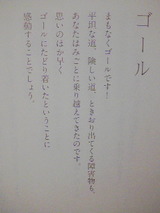 ゴール
まもなくゴールです!
平坦な道、険しい道、ときおり出てくる障害物も、
あなたはみごとに乗り越えてきたのです。
思いのほか早く
ゴールにたどり着いたということに
感動することでしょう。